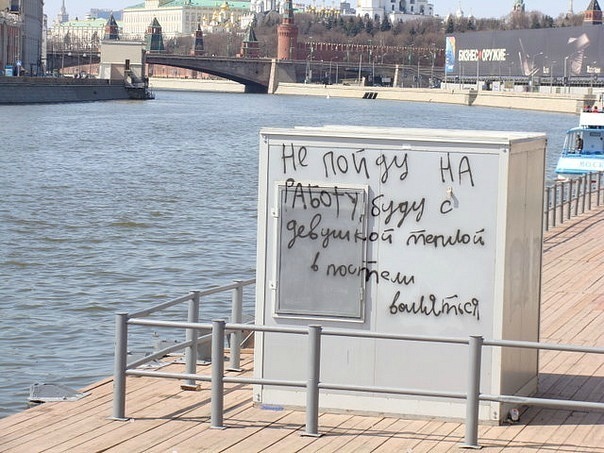 БИЗНЕС ОРУЖИЕ
Не пойду на
работу буду с
девушкой теплой
в постели
валяться